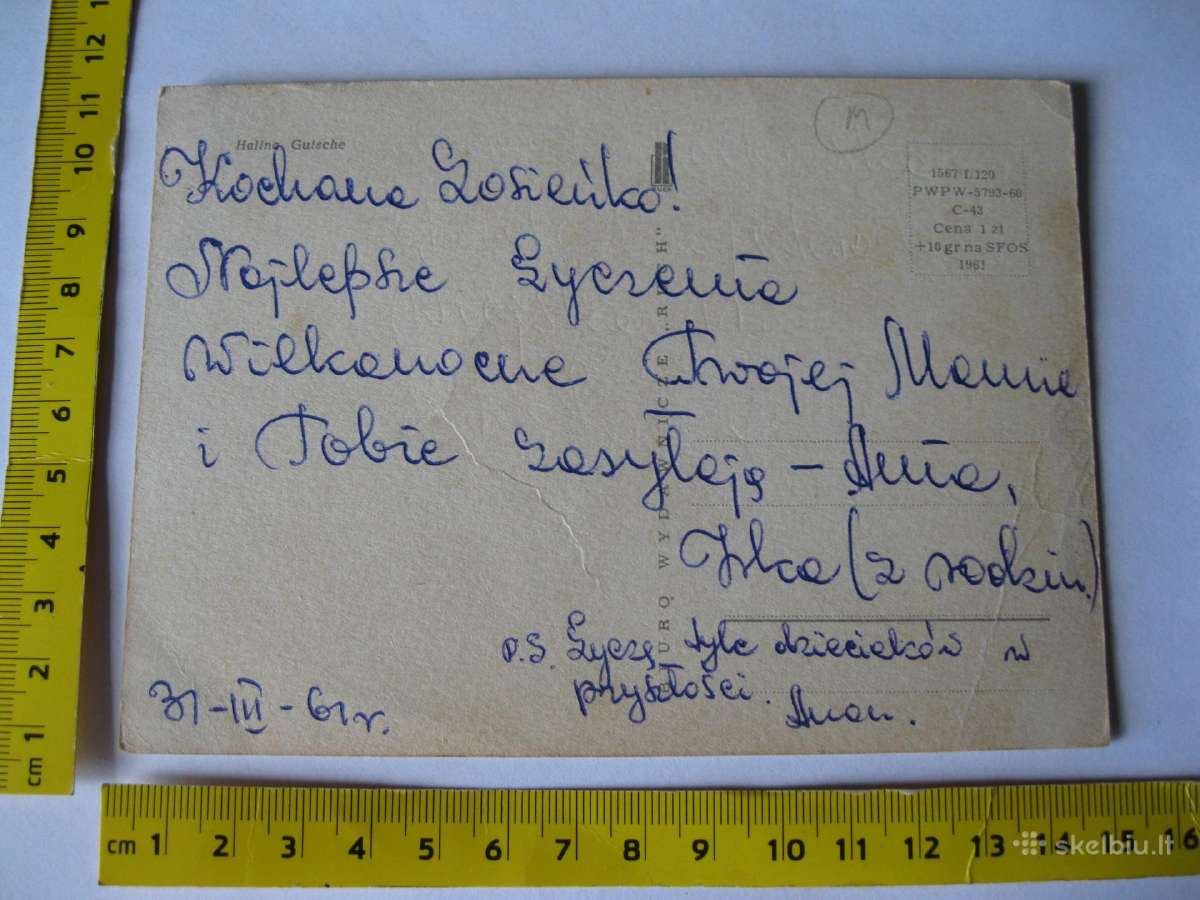 Halina Gutsche
M
1567/I/120
PWPW-5793-60
C-43
Cena 1 zł
+10 gr na SFOS
1961
Kochana Zosieńko!
Najlepsze Życzenia
Wielkanocne Twojej Mamie
i Tobie zasyłają – Ania,
(z rodzin.)
P.S. Życzę tyle dzieciaków w
przyszłości.
31-III-61r.
BIURO WYDAWNICZE „RUCH"
cm 1 2 3 4 5 6 7 8 9 10 11 12
cm 1 2 3 4 5 6 7 8 9 10 11 12 13 14 15 16
skelbiu.lt